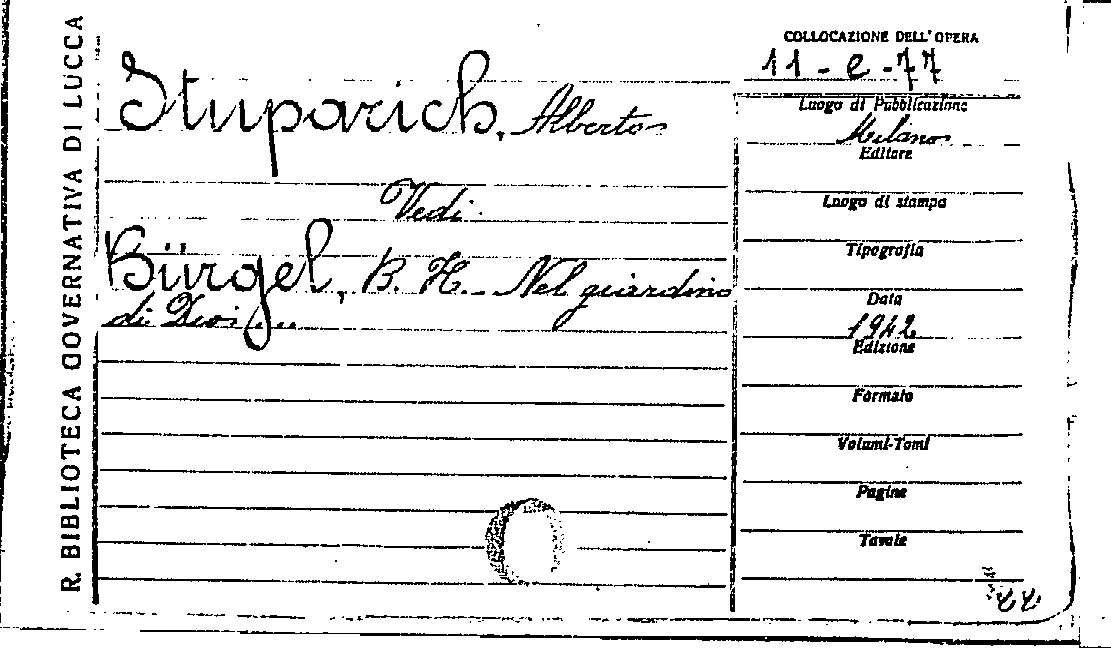 R. BIBLIOTECA GOVERNATIVA DI LUCCA
Stuparich, Alberto
Vedi
Bürgel, B. H. - Nel giardino
di Dio....
COLLOCAZIONE DELL'OPERA
11-e-77
Luogo di Pubblicazione
Milano
Editore
Luogo di stampa
Tipografia
Data
1942
Edizione
Formato
Volumi-Tomi
Pagine
Tavole